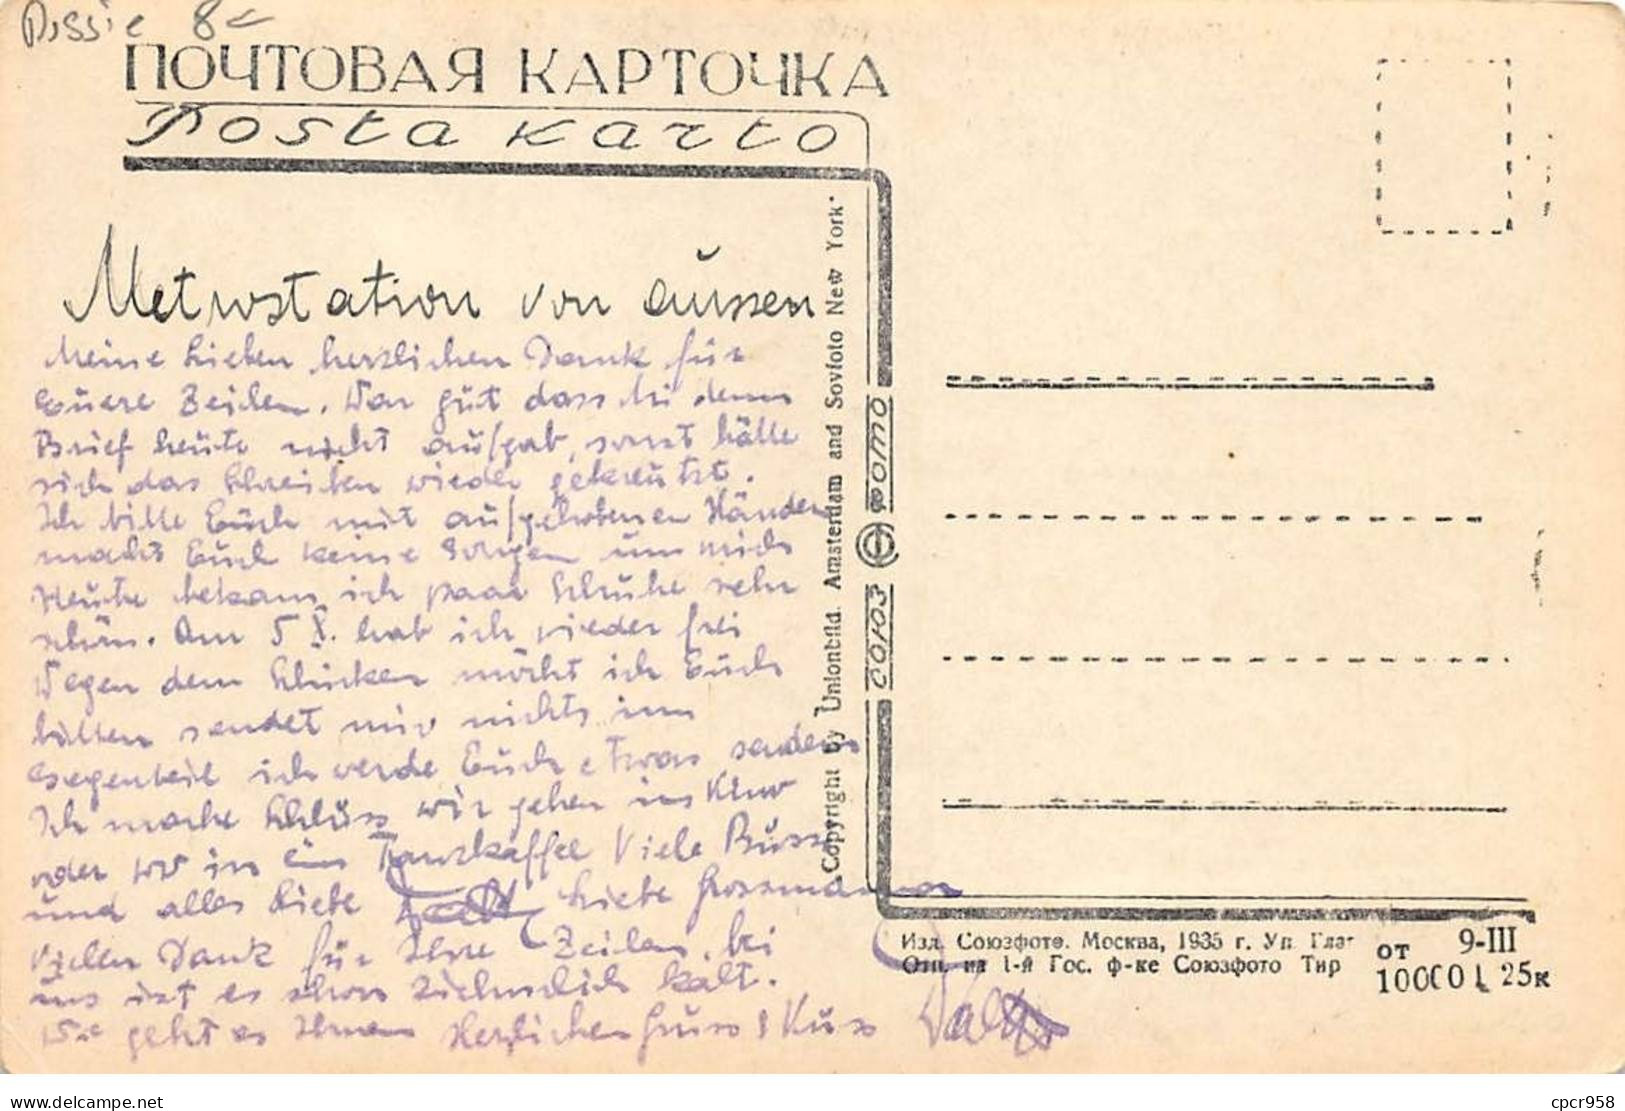 Russie 8€
ПОЧТОВАЯ КАРТОЧКА
Posta karto
Metrostation von aussen
Meine Lieben herzlichen Dank für
Euere Zeilen. War gut dass
Brief heute nicht aufgab, sonst hätte
sich das Schreiben wieder gekreutzt.
Ich bitte Euch mit aufgehobenen Händen
macht Euch keine Sorgen um mich
Heute bekam ich paar Schuhe sehr
schön. Am 5 X. hab ich wieder frei
Wegen dem Schicken möcht ich Euch
bitten sendet mir nichts im
Gegenteil ich werde Euch etwas senden
Ich mache Schluss wir gehen ins Kino
oder wo in ein Tanzkaffee Viele Bussi
und alles Liebe Liebe Grossmama
Vielen Dank für Ihre Zeilen, bei
uns ist es schon ziehmlich kalt.
Wie geht es Ihnen Herzlichen Gruss & Kuss
Copyright by Unionbild. Amsterdam and Sovfoto New York"
СОЮЗ ФОТО
Изд. Союзфото. Москва, 1935 г. Уп. Глав
Отп. на 1-й Гос. ф-ке Союзфото Тир
от 9-III
10000 25к
delcampe.net
cpcr958